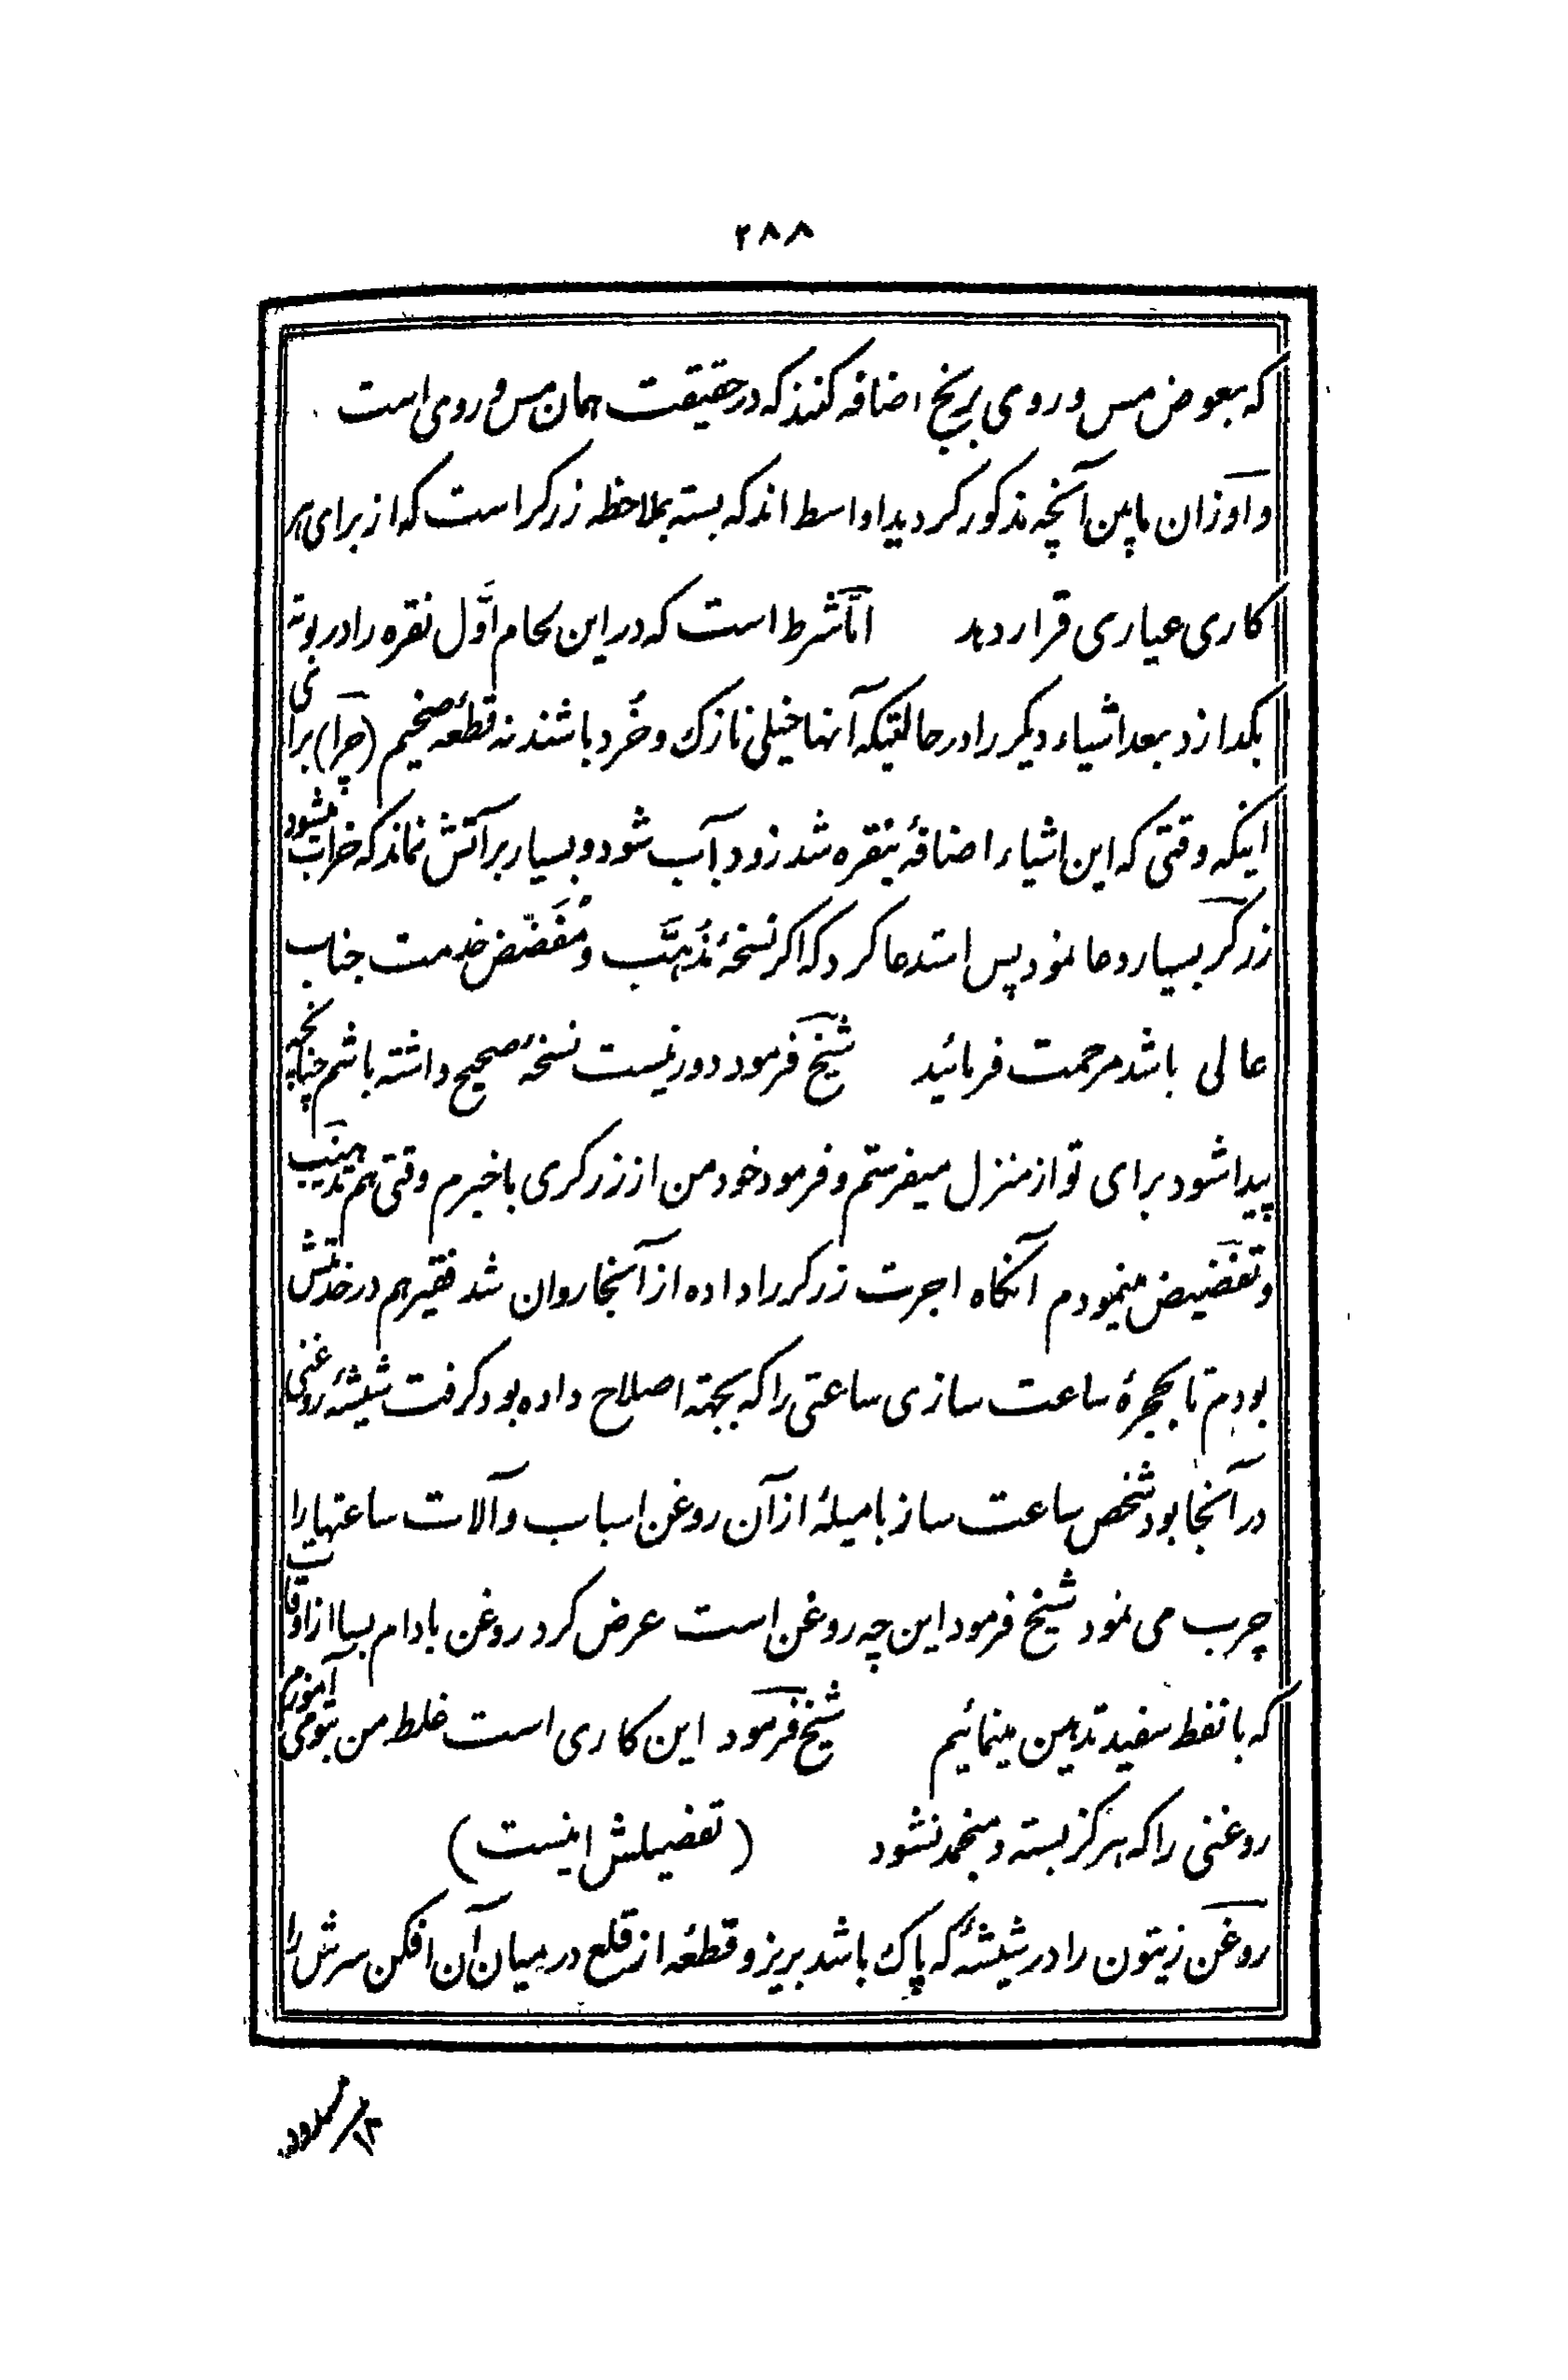 ۲۸۸
که بعوض مس و روی برنج اضافه کنند که در حقیقت همان مس و روی است
و اوزان مابین آنچه مذکور کردید اواسط اند که بسته بملاحظه زرکر است که از برای هر
کاری عیاری قرار دهد اما شرط است که در این لحام اوّل نقره را در بوته
بکدازد بعد اشیاء دیکر را در حالتیکه آنها خیلی نازک و خُرد باشند نه قطعهٔ ضخیم (چرا) برای
اینکه وقتی که این اشیاء اضافهٔ بنقره شد زود آب شود و بسیار بر آتش نماند که خراب میشود
زرکر بسیار دعا نمود پس استدعا کرد که اکر نسخهٔ مُذَهَّب و مُفَضَّض خدمت جناب
عالی باشد مرحمت فرمائید شیخ فرمود دور نیست نسخهٔ صحیح داشته باشم چنانچه
پیدا شود برای تو از منزل میفرستم و فرمود خود من از زرکری باخبرم وقتی هم تذهیب
و تفضیض مینمودم آنکاه اجرت زرکر را داده از آنجا روان شد فقیر هم در خدمتش
بودم تا بحجرهٔ ساعت سازی ساعتی را که بجهة اصلاح داده بود کرفت شیشهٔ روغنی
در آنجا بود شخص ساعت ساز با میلهٔ از آن روغن اسباب و آلات ساعتها را
چرب می نمود شیخ فرمود این چه روغن است عرض کرد روغن بادام بسا از اوقات
که با نفط سفید تدهین مینمائیم شیخ فرمود این کاری است غلط من بتو می آموزم
روغنی را که هرکز بسته و منجمد نشود (تفضیلش اینست)
روغن زیتون را در شیشهٔ که پاک باشد بریز و قطعهٔ از قلع در میان آن افکن سرش را